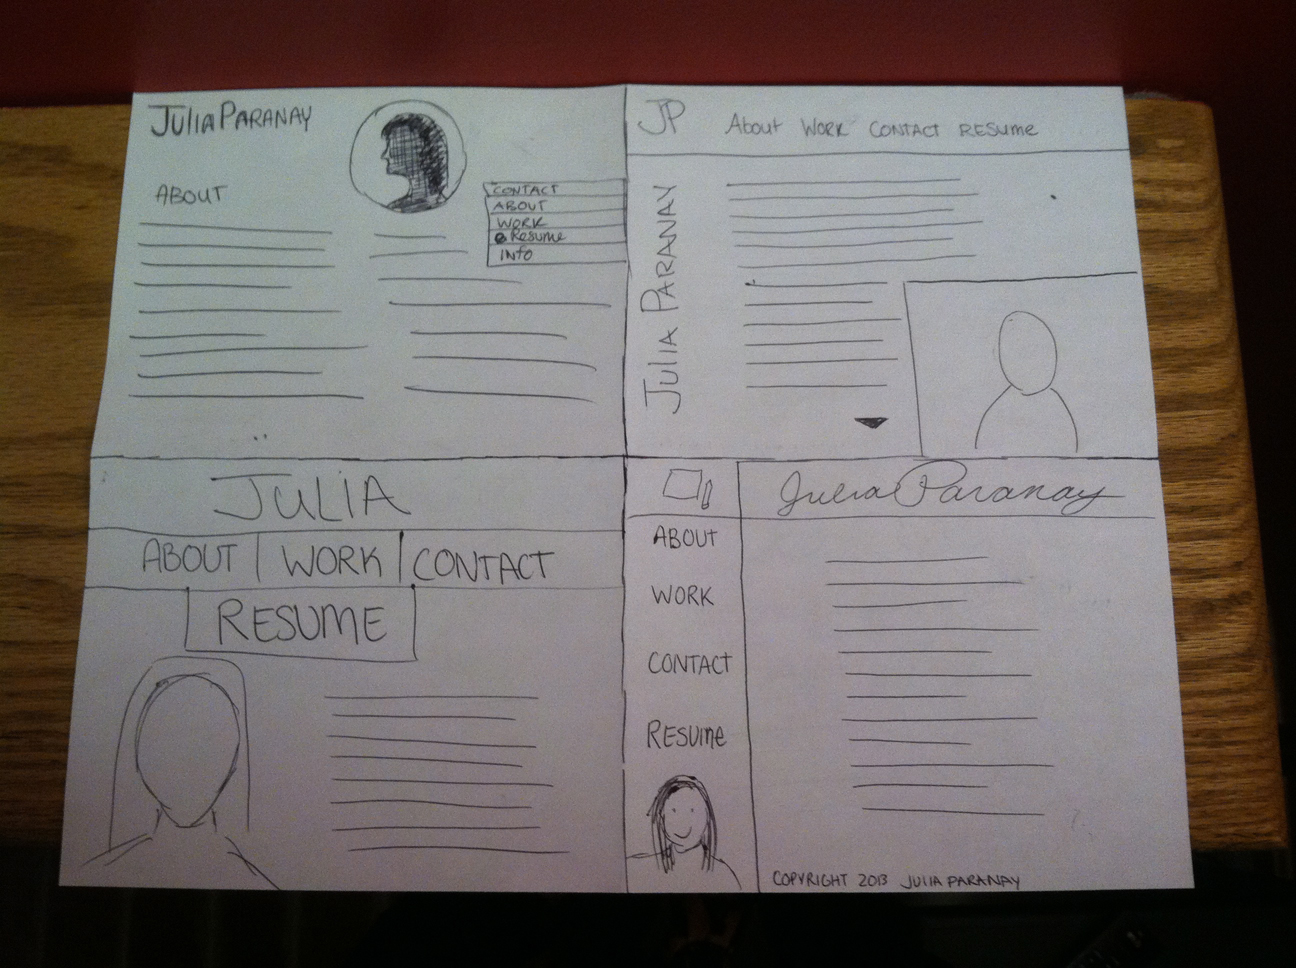 JULIA PARANAY
ABOUT
CONTACT
ABOUT
WORK
Resume
INFO
JP
About WORK CONTACT RESUME
JULIA PARANAY
JULIA
ABOUT | WORK | CONTACT
RESUME
Julia Paranay
ABOUT
WORK
CONTACT
RESUME
COPYRIGHT 2013 JULIA PARANAY